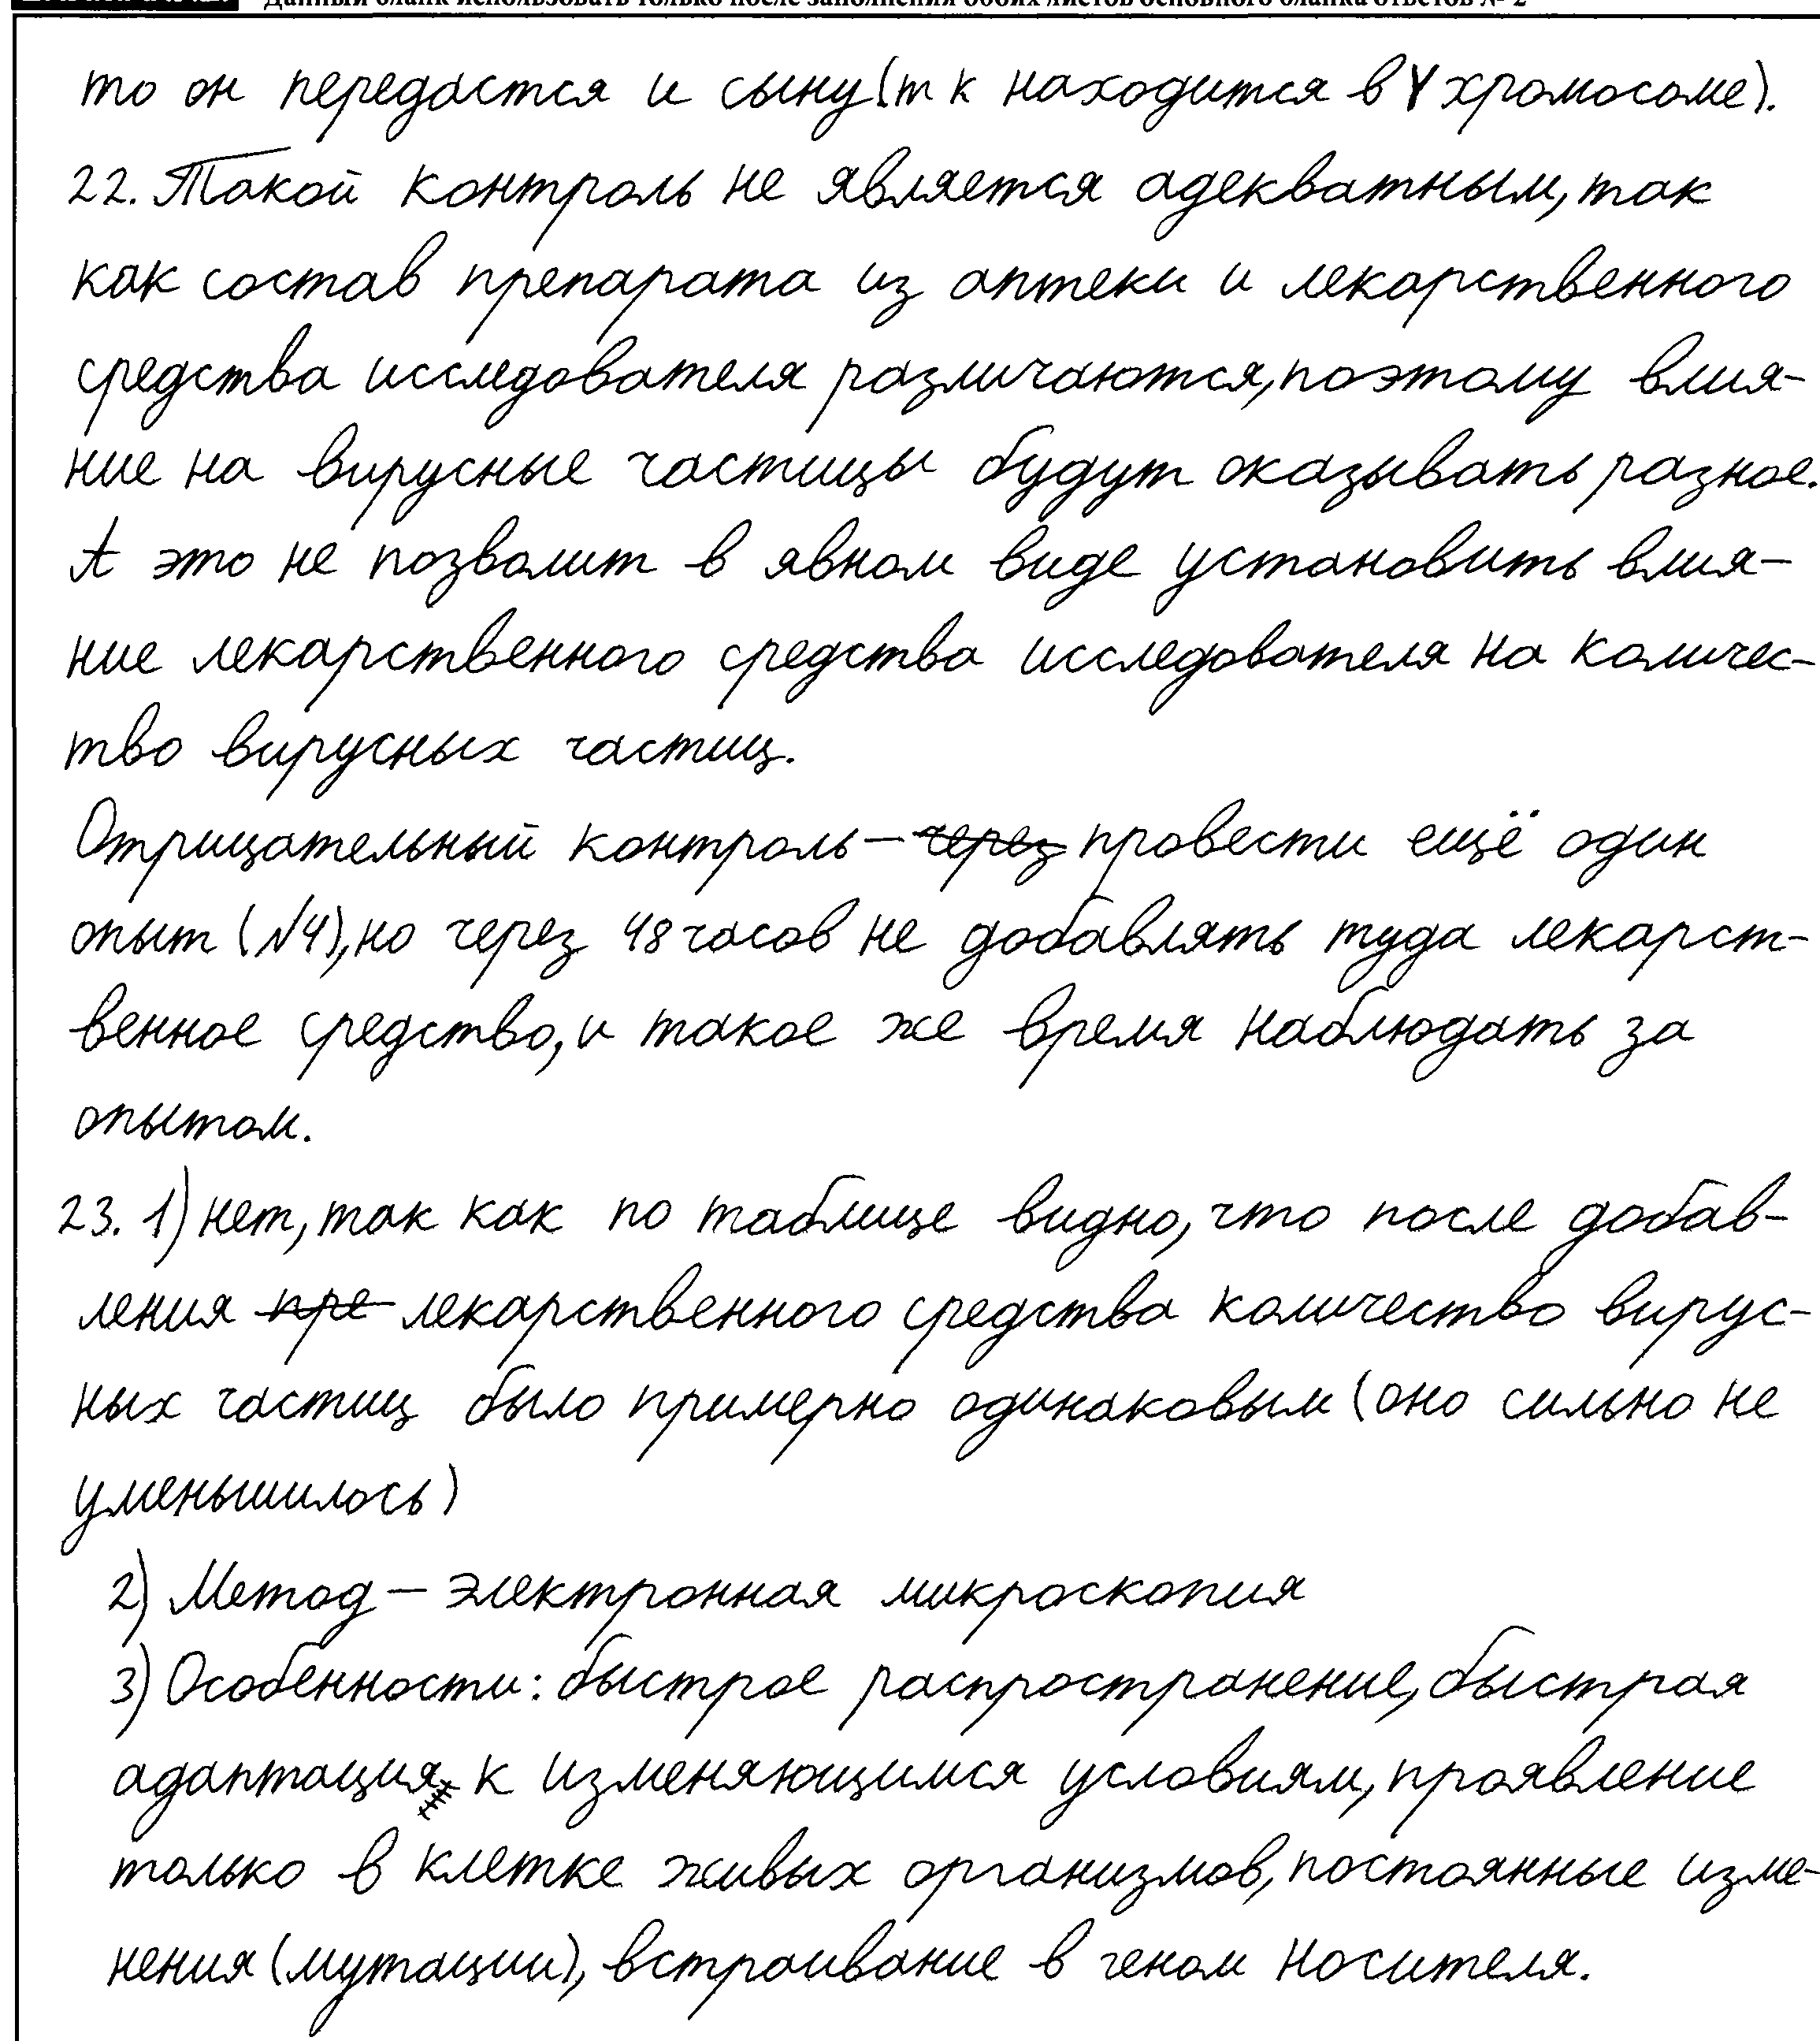 Данный бланк использовать только после заполнения обоих листов основного бланка ответов № 2
то он передастся и сыну (т к находится в Y хромосоме).
22. Такой контроль не является адекватным, так
как состав препарата из аптеки и лекарственного
средства исследователя различаются, поэтому влия-
ние на вирусные частицы будут оказывать разное.
А это не позволит в явном виде установить влия-
ние лекарственного средства исследователя на количес-
тво вирусных частиц.
Отрицательный контроль – через провести ещё один
опыт (№4), но через 48 часов не добавлять туда лекарст-
венное средство, и такое же время наблюдать за
опытом.
23. 1) нет, так как по таблице видно, что после добав-
ления пре лекарственного средства количество вирус-
ных частиц было примерно одинаковым (оно сильно не
уменьшилось)
2) Метод – электронная микроскопия
3) Особенности: быстрое распространение, быстрая
адаптация к изменяющимся условиям, проявление
только в клетке живых организмов, постоянные изме-
нения (мутации), встраивание в геном носителя.